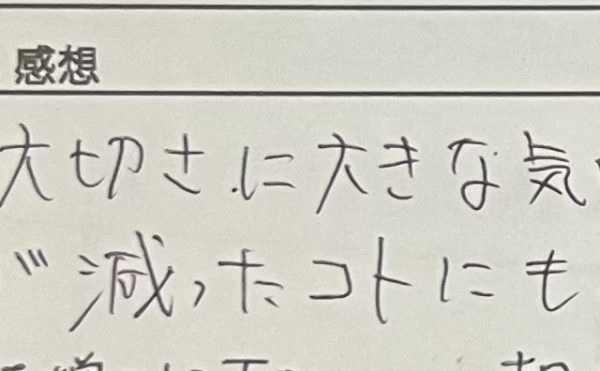 感想
大切さに大きな気
減ったコトにも